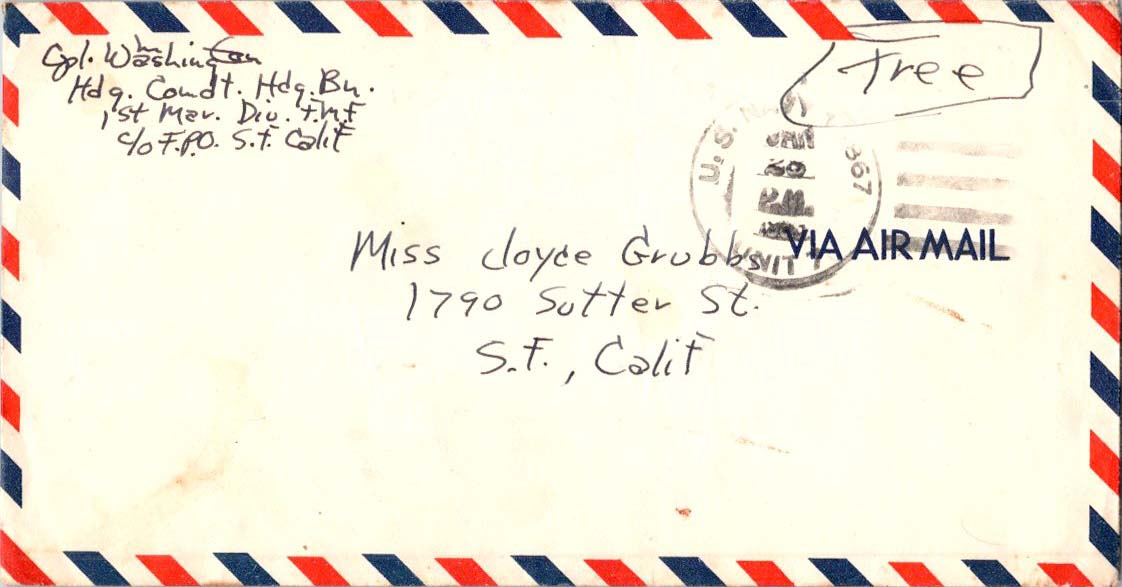 Cpl. Washington
Hdq. Comdt. Hdq. Bn.
1st Mar. Div. F.M.F
c/o F.P.O. S.F. Calif
Free
U.S. NAVY 867
JAN
P.M.
UNIT 1
VIA AIR MAIL
Miss Joyce Grubbs
1790 Sutter St.
S.F., Calif